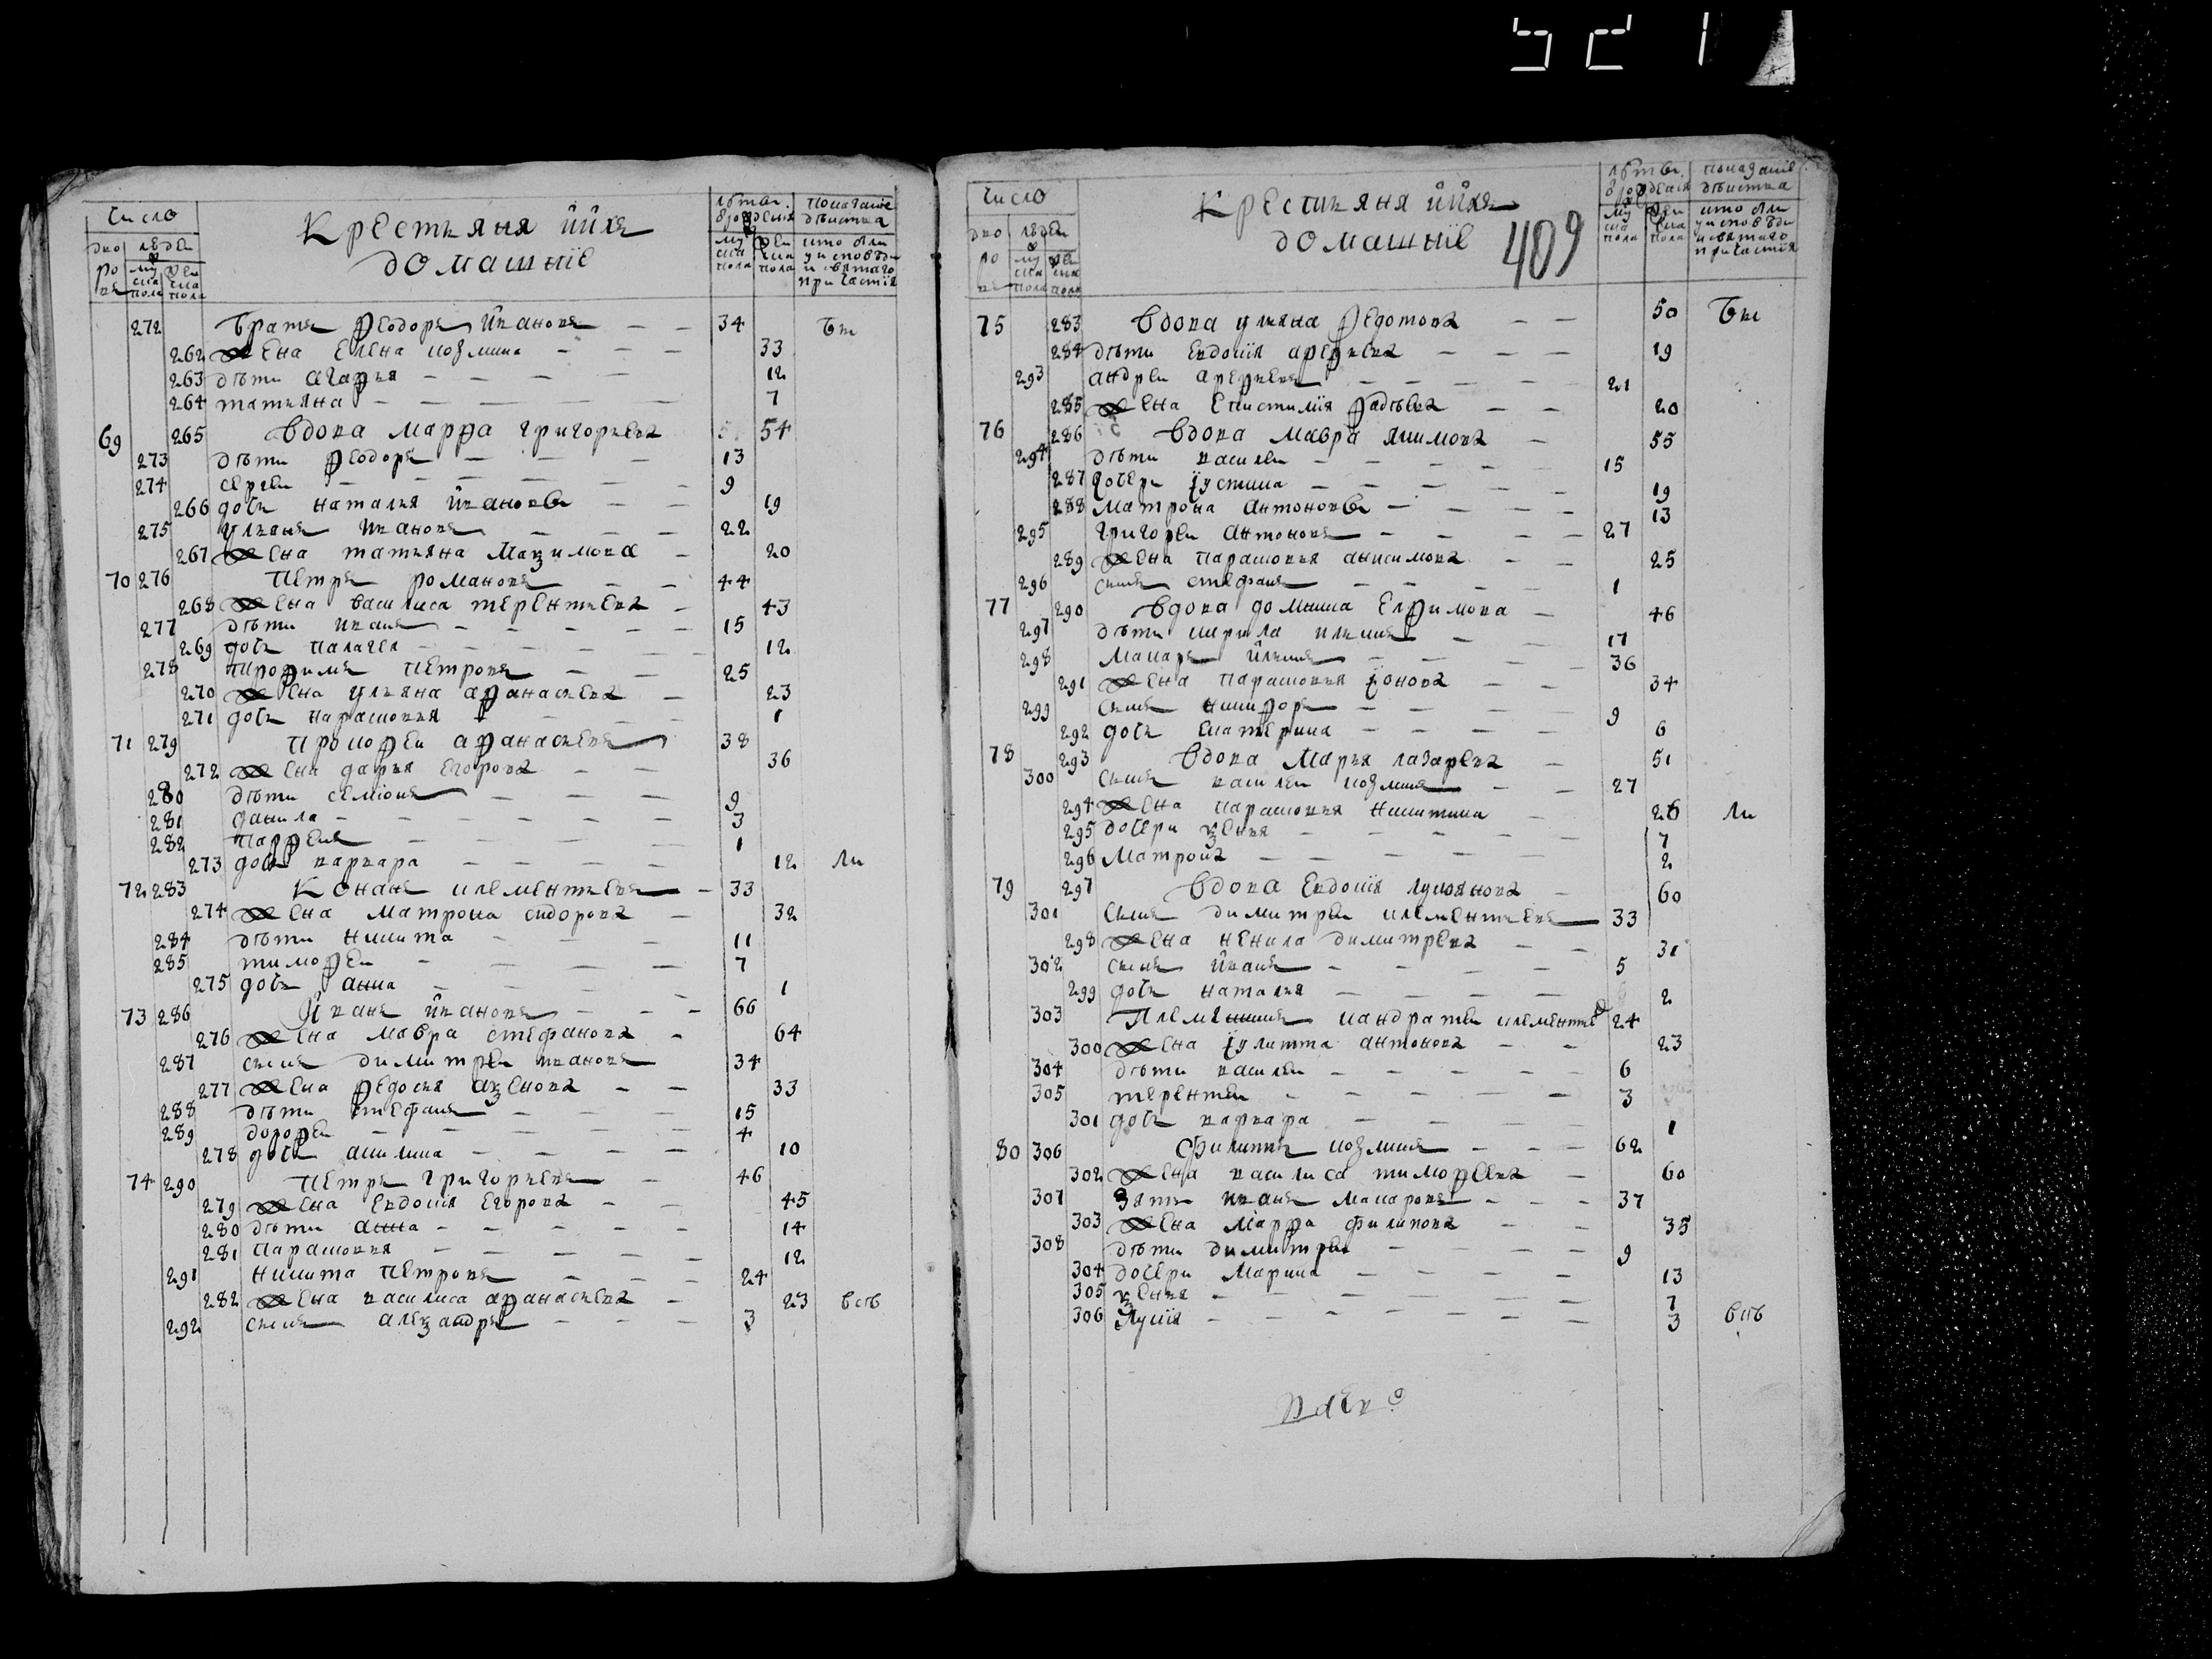 521
Число
Крестьяня ийхъ
домашнiе
лѣтъ
ѿ рожденiя
показанiе
дѣйства
дво
ровъ
людей
муска пола
женска пола
муска пола
женска пола
кто были
у исповѣди
и святаго
причастiя
272 братъ Ѳеодоръ Ивановъ 34 бы
262 жена Елена козмина 33
263 дѣти агаѳья 12
264 татьяна 7
69 265 вдова марѳа григорьева 54
273 дѣти Ѳеодоръ 13
274 сергѣи 9
266 дочь наталья Иванова 19
275 ульянъ Ивановъ 22
267 жена татьяна Маѯимова 20
70 276 Петръ романовъ 44
268 жена василиса терентьева 43
277 дѣти иванъ 15
269 дочь палагея 12
278 троѳимъ Петровъ 25
270 жена ульяна аѳанасьева 23
271 дочь парасковья 1
71 279 Прокоѳеи аѳанасьевъ 38
272 жена дарья Егорова 36
280 дѣти семiонъ 9
281 данила 3
282 парѳенъ 1
273 дочь варвара 12 ли
72 283 Конанъ клементьевъ 33
274 жена матрона сидорова 32
284 дѣти никита 11
285 тимоѳеи 7
275 дочь анна 1
73 286 Иванъ Ивановъ 66
276 жена мавра стефанова 64
287 сынъ димитреи ивановъ 34
277 жена Ѳедосья аѯенова 33
288 дѣти стефанъ 15
289 дороѳеи 4
278 дочь акилина 10
74 290 Петръ григорьевъ 46
279 жена Евдокiя Егорова 45
280 дѣти анна 14
281 парасковья 12
291 никита Петровъ 24
282 жена василиса аѳанасьева 23 всѣ
292 сынъ алеѯандръ 3
Число
Крестьяня ийхъ
домашнiе
409
лѣтъ
ѿ рожденiя
показанiе
дѣйства
дво
ровъ
людей
муска пола
женска пола
муска пола
женска пола
кто были
у исповѣди
и святаго
причастiя
75 283 вдова ульяна Ѳедотова 50 бы
284 дѣти Евдокiя
19
293 андреи
21
285 жена Епистимiя Ѳадѣева 20
76 286 вдова мавра якимова 55
294 дѣти василеи 15
287 дочери iустина 19
288 матрона антонова 13
295 григореи антоновъ 27
289 жена парасковья анисимова 25
296 сынъ стефанъ 1
77 290 вдова домника Елѳимова 46
297 дѣти кирила ильинъ 17
298 макаръ ильинъ 36
291 жена парасковья iонова 34
299 сынъ никиѳоръ 9
292 дочь Екатерина 6
78 293 вдова марья лазарева 51
300 сынъ василеи козминъ 27
294 жена парасковья никитина 26 ли
295 дочери ѯенья 7
296 Матрона 2
79 297 вдова Евдокiя лукоянова 60
301 сынъ димитреи клементьевъ 33
298 жена ненила димитрева 31
302 сынъ Иванъ 5
299 дочь наталья 2
303 племянникъ кандратеи клементьев 24
300 жена iулитта антонова 23
304 дѣти василеи 6
305 терентеи 3
301 дочь варвара 1
80 306 филиппъ козминъ 62
302 жена василиса тимоѳеева 60
307 зять иванъ макаровъ 37
303 жена марѳа филипова 35
308 дѣти димитреи 9
304 дочери марина 13
305 ѯенья 7
306 лукiя 3 всѣ